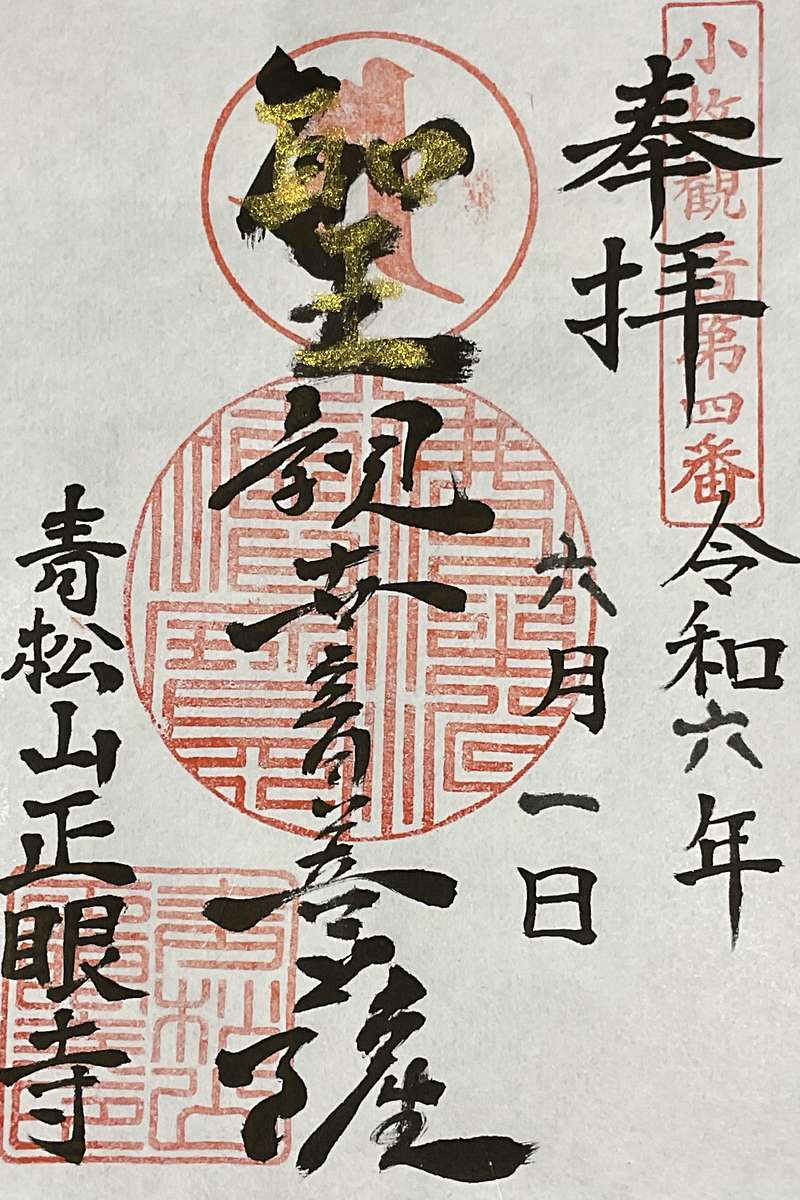 小牧観音第四番
奉拝
令和六年
六月一日
聖観世音菩薩
青松山正眼寺